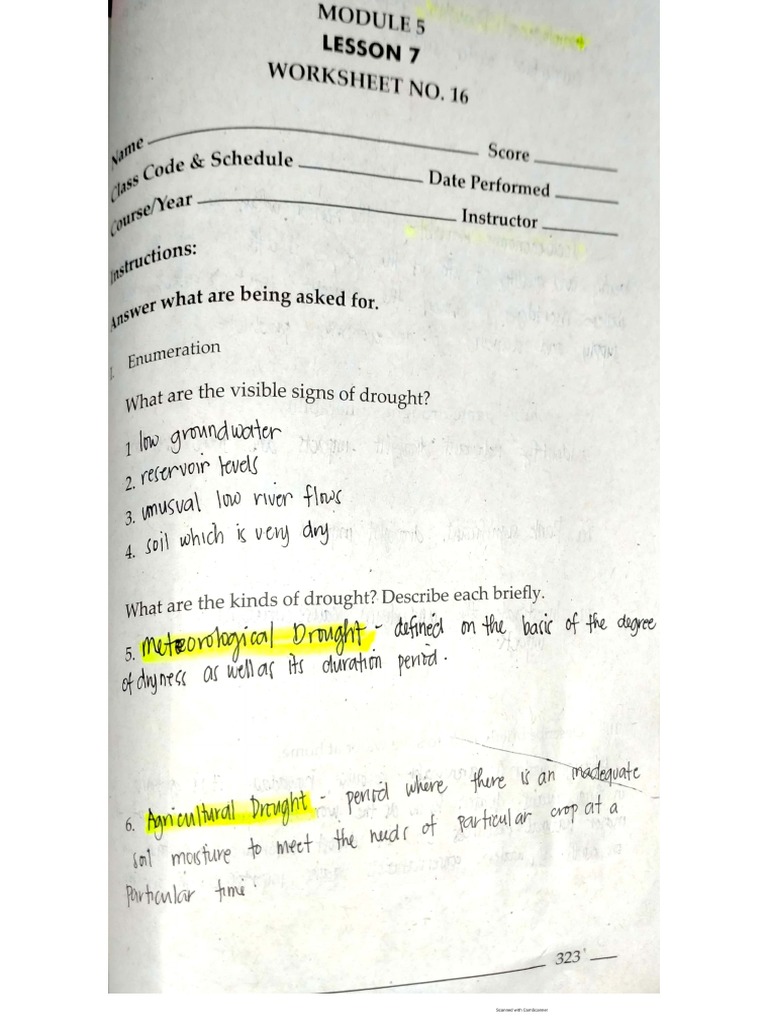 MODULE 5
LESSON 7
WORKSHEET NO. 16
Name
Score
Class Code & Schedule
Date Performed
Course/Year
Instructor
Instructions:
Answer what are being asked for.
I. Enumeration
What are the visible signs of drought?
1 low groundwater
2. reservoir levels
3. unusual low river flows
4. soil which is very dry
What are the kinds of drought? Describe each briefly.
5. Meteorological Drought - defined on the basic of the degree
of dryness as well as its duration period.
6. Agricultural Drought - period where there is an inadequate
soil moisture to meet the needs of particular crop at a
particular time.
323
Scanned with CamScanner